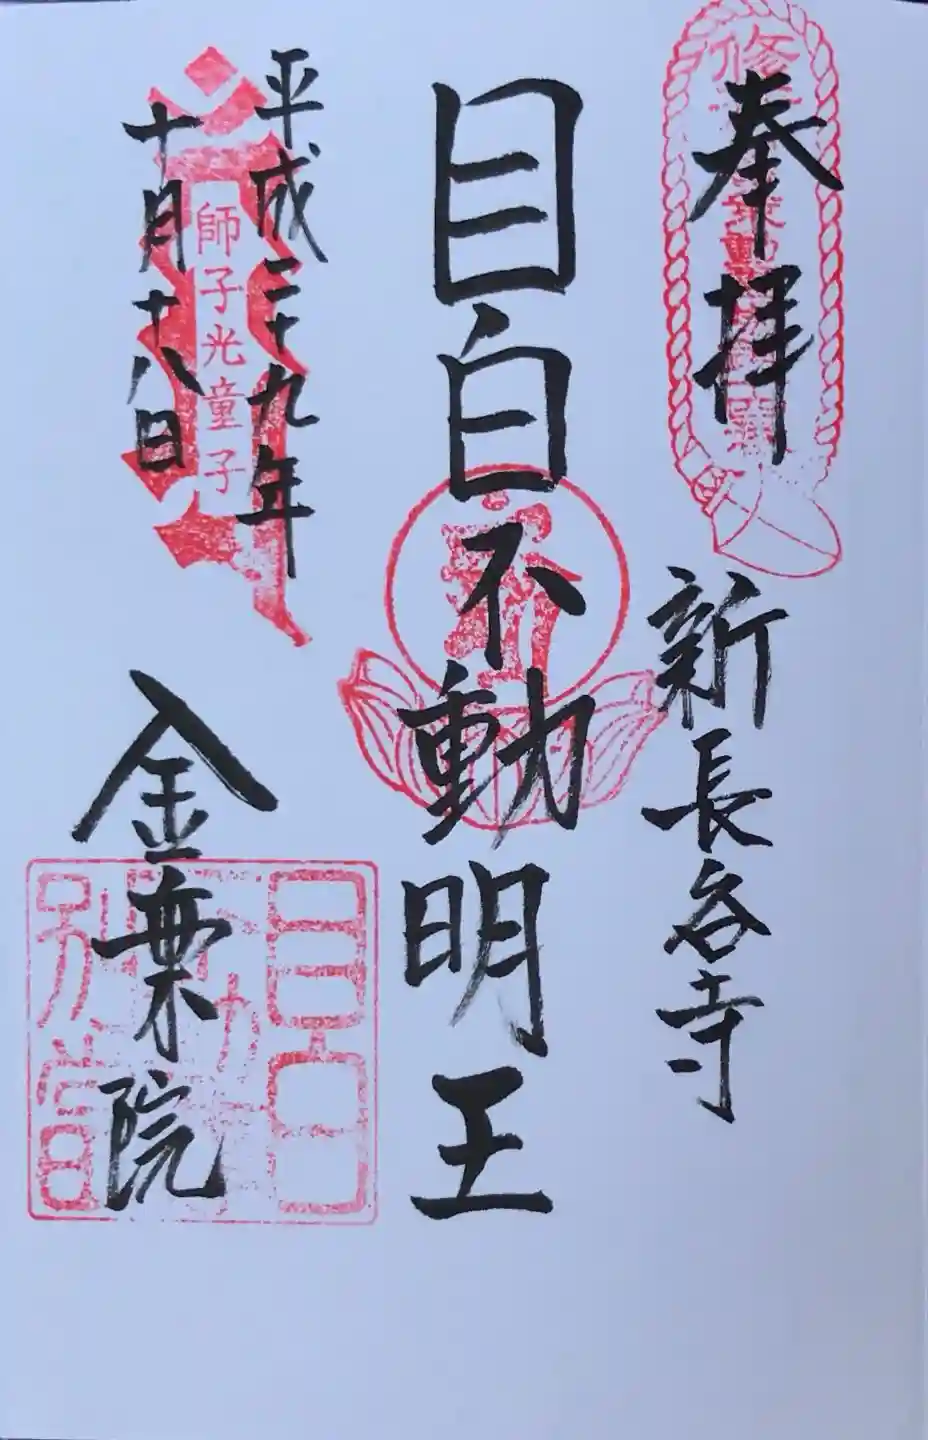 奉拝
新長谷寺
目白不動明王
平成二十九年
十月十八日
師子光童子
金乗院
目白